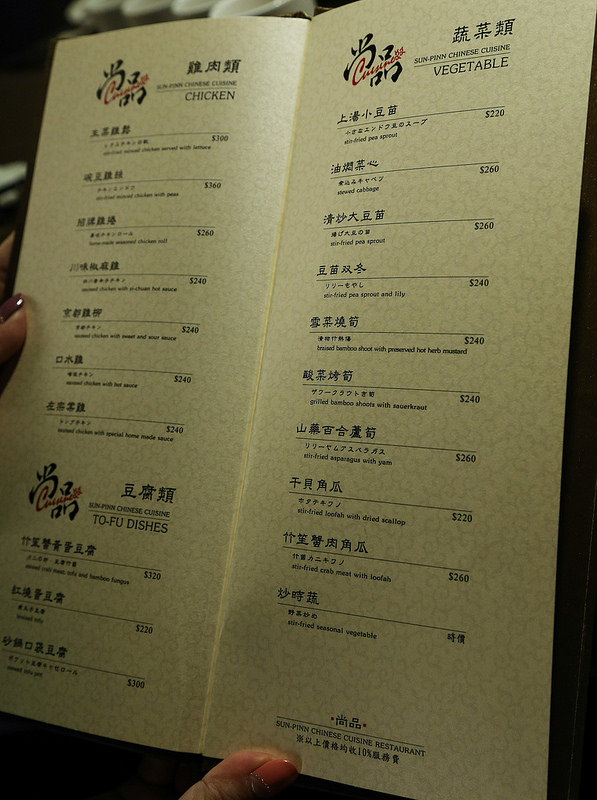 尚品
Cuisine
雞肉類
SUN-PINN CHINESE CUISINE
CHICKEN
生菜雞鬆 $300
レタスチキン
stir-fried minced chicken served with lettuce
豌豆雞 $360
チキンエンドウ
stir-fried minced chicken with peas
招牌雞捲 $260
チキンロール
home-made seasoned chicken roll
川味椒麻雞 $240
seasoned chicken with si-chuan hot sauce
京都雞柳 $240
京都チキン
sauteed chicken with sweet and sour sauce
口水雞 $240
チキン
sauteed chicken with hot sauce
左宗棠雞 $240
チキン
sauteed chicken with special home made sauce
尚品
Cuisine
豆腐類
SUN-PINN CHINESE CUISINE
TO-FU DISHES
竹笙蟹黃蛋豆腐 $320
stewed crab meat, tofu and bamboo fungus
紅燒蛋豆腐 $220
braised tofu
砂鍋口袋豆腐 $300
尚品
Cuisine
蔬菜類
SUN-PINN CHINESE CUISINE
VEGETABLE
上湯小豆苗 $220
小さなエンドウ豆のスープ
stir-fried pea sprout
油燜菜心 $260
煮込みキャベツ
stewed cabbage
清炒大豆苗 $260
揚げ大豆の苗
stir-fried pea sprout
豆苗双冬 $240
リリーもやし
stir-fried pea sprout and lily
雪菜燒筍 $240
braised bamboo shoot with preserved hot herb mustard
酸菜烤筍 $240
ザワークラウト
grilled bamboo shoots with sauerkraut
山藥百合蘆筍 $260
リリーやムアスパラガス
stir-fried asparagus with yam
干貝角瓜 $220
ホタテキワノ
stir-fried loofah with dried scallop
竹笙蟹肉角瓜 $260
竹笛カニキワノ
stir-fried crab meat with loofah
炒時蔬 時價
野菜炒め
stir-fried seasonal vegetable
·尚品·
SUN-PINN CHINESE CUISINE RESTAURANT
※以上價格均收10%服務費